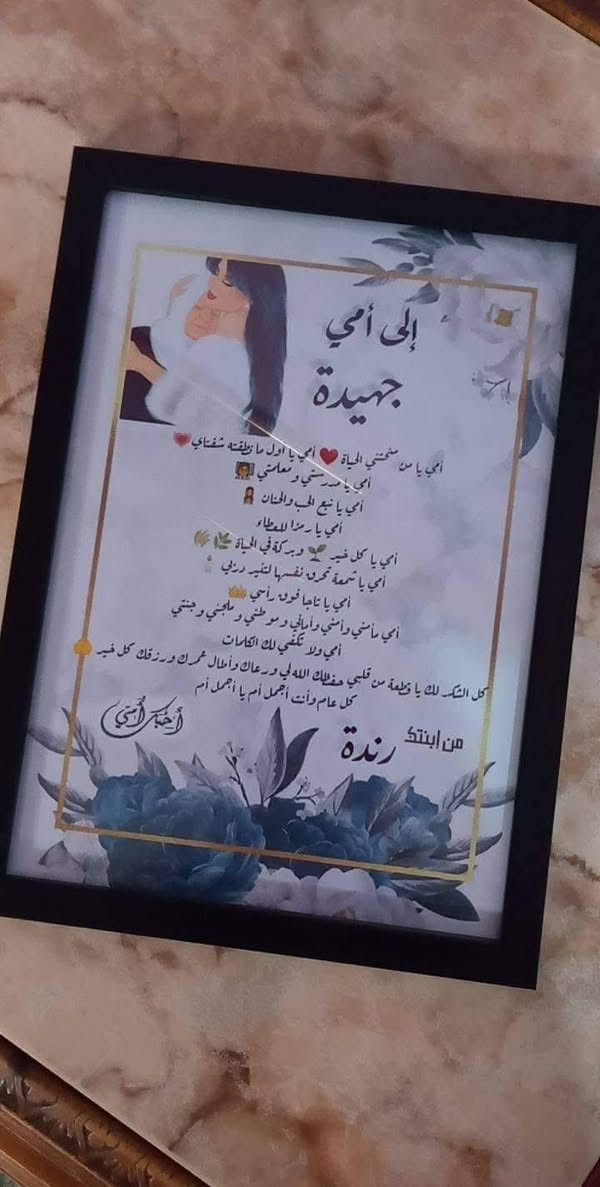 إلى أمي
جهيدة
أمي يا من منحتني الحياة ❤️ أمي يا أول ما نطقته شفتاي 💗
أمي يا مدرستي و معلمتي 👩‍🏫
أمي يا نبع الحب والحنان
أمي يا رمزا للعطاء
أمي يا كل خير 🌱 وبركة في الحياة 🌿🌾
أمي يا شمعة تحرق نفسها لتنير دربي 🕯️
أمي يا تاجا فوق رأسي 👑
أمي مأمني وأمني وأماني وموطني و ملجئي و جنتي
أمي ولا تكفي لك الكلمات
كل الشكر لك يا قطعة من قلبي حفظك الله لي ورعاك وأطال عمرك ورزقك كل خير
كل عام وأنت أجمل أم يا أجمل أم
من إبنتك رندة
أحبك أمي